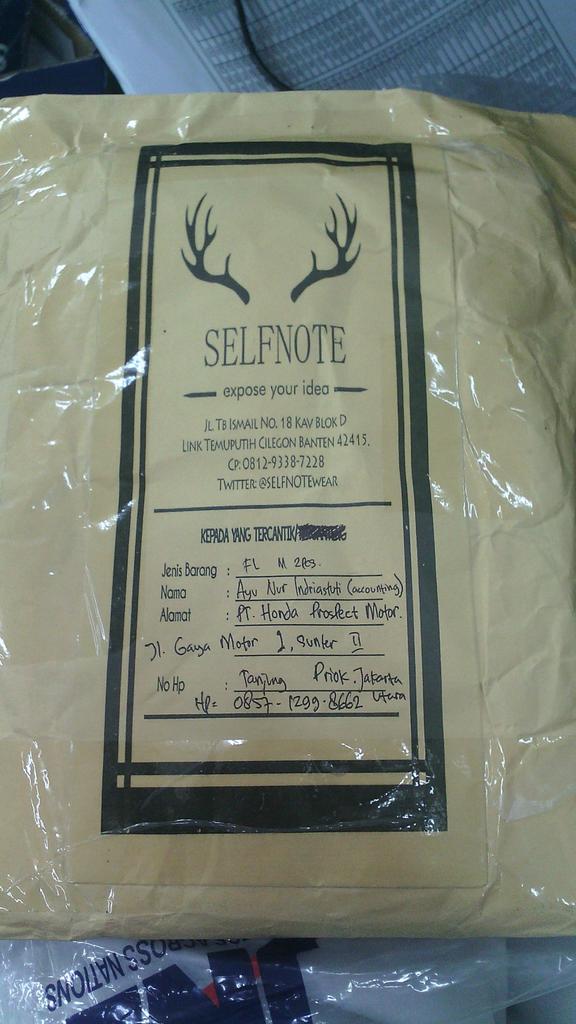 SELFNOTE
expose your idea
JL TB ISMAIL NO. 18 KAV BLOK D
LINK TEMUPUTIH CILEGON BANTEN 42415.
CP: 0812-9338-7228
TWITTER: @SELFNOTEWEAR
KEPADA YANG TERCANTIK/
Jenis Barang : FL M 2pcs.
Nama : Ayu Nur Indriastuti (accounting)
Alamat : PT. Honda Prospect Motor.
Jl. Gaya Motor 1, Sunter II
No Hp : Tanjung Priok. Jakarta Utara
Hp = 0857-1299-8662
ACROSS NATIONS